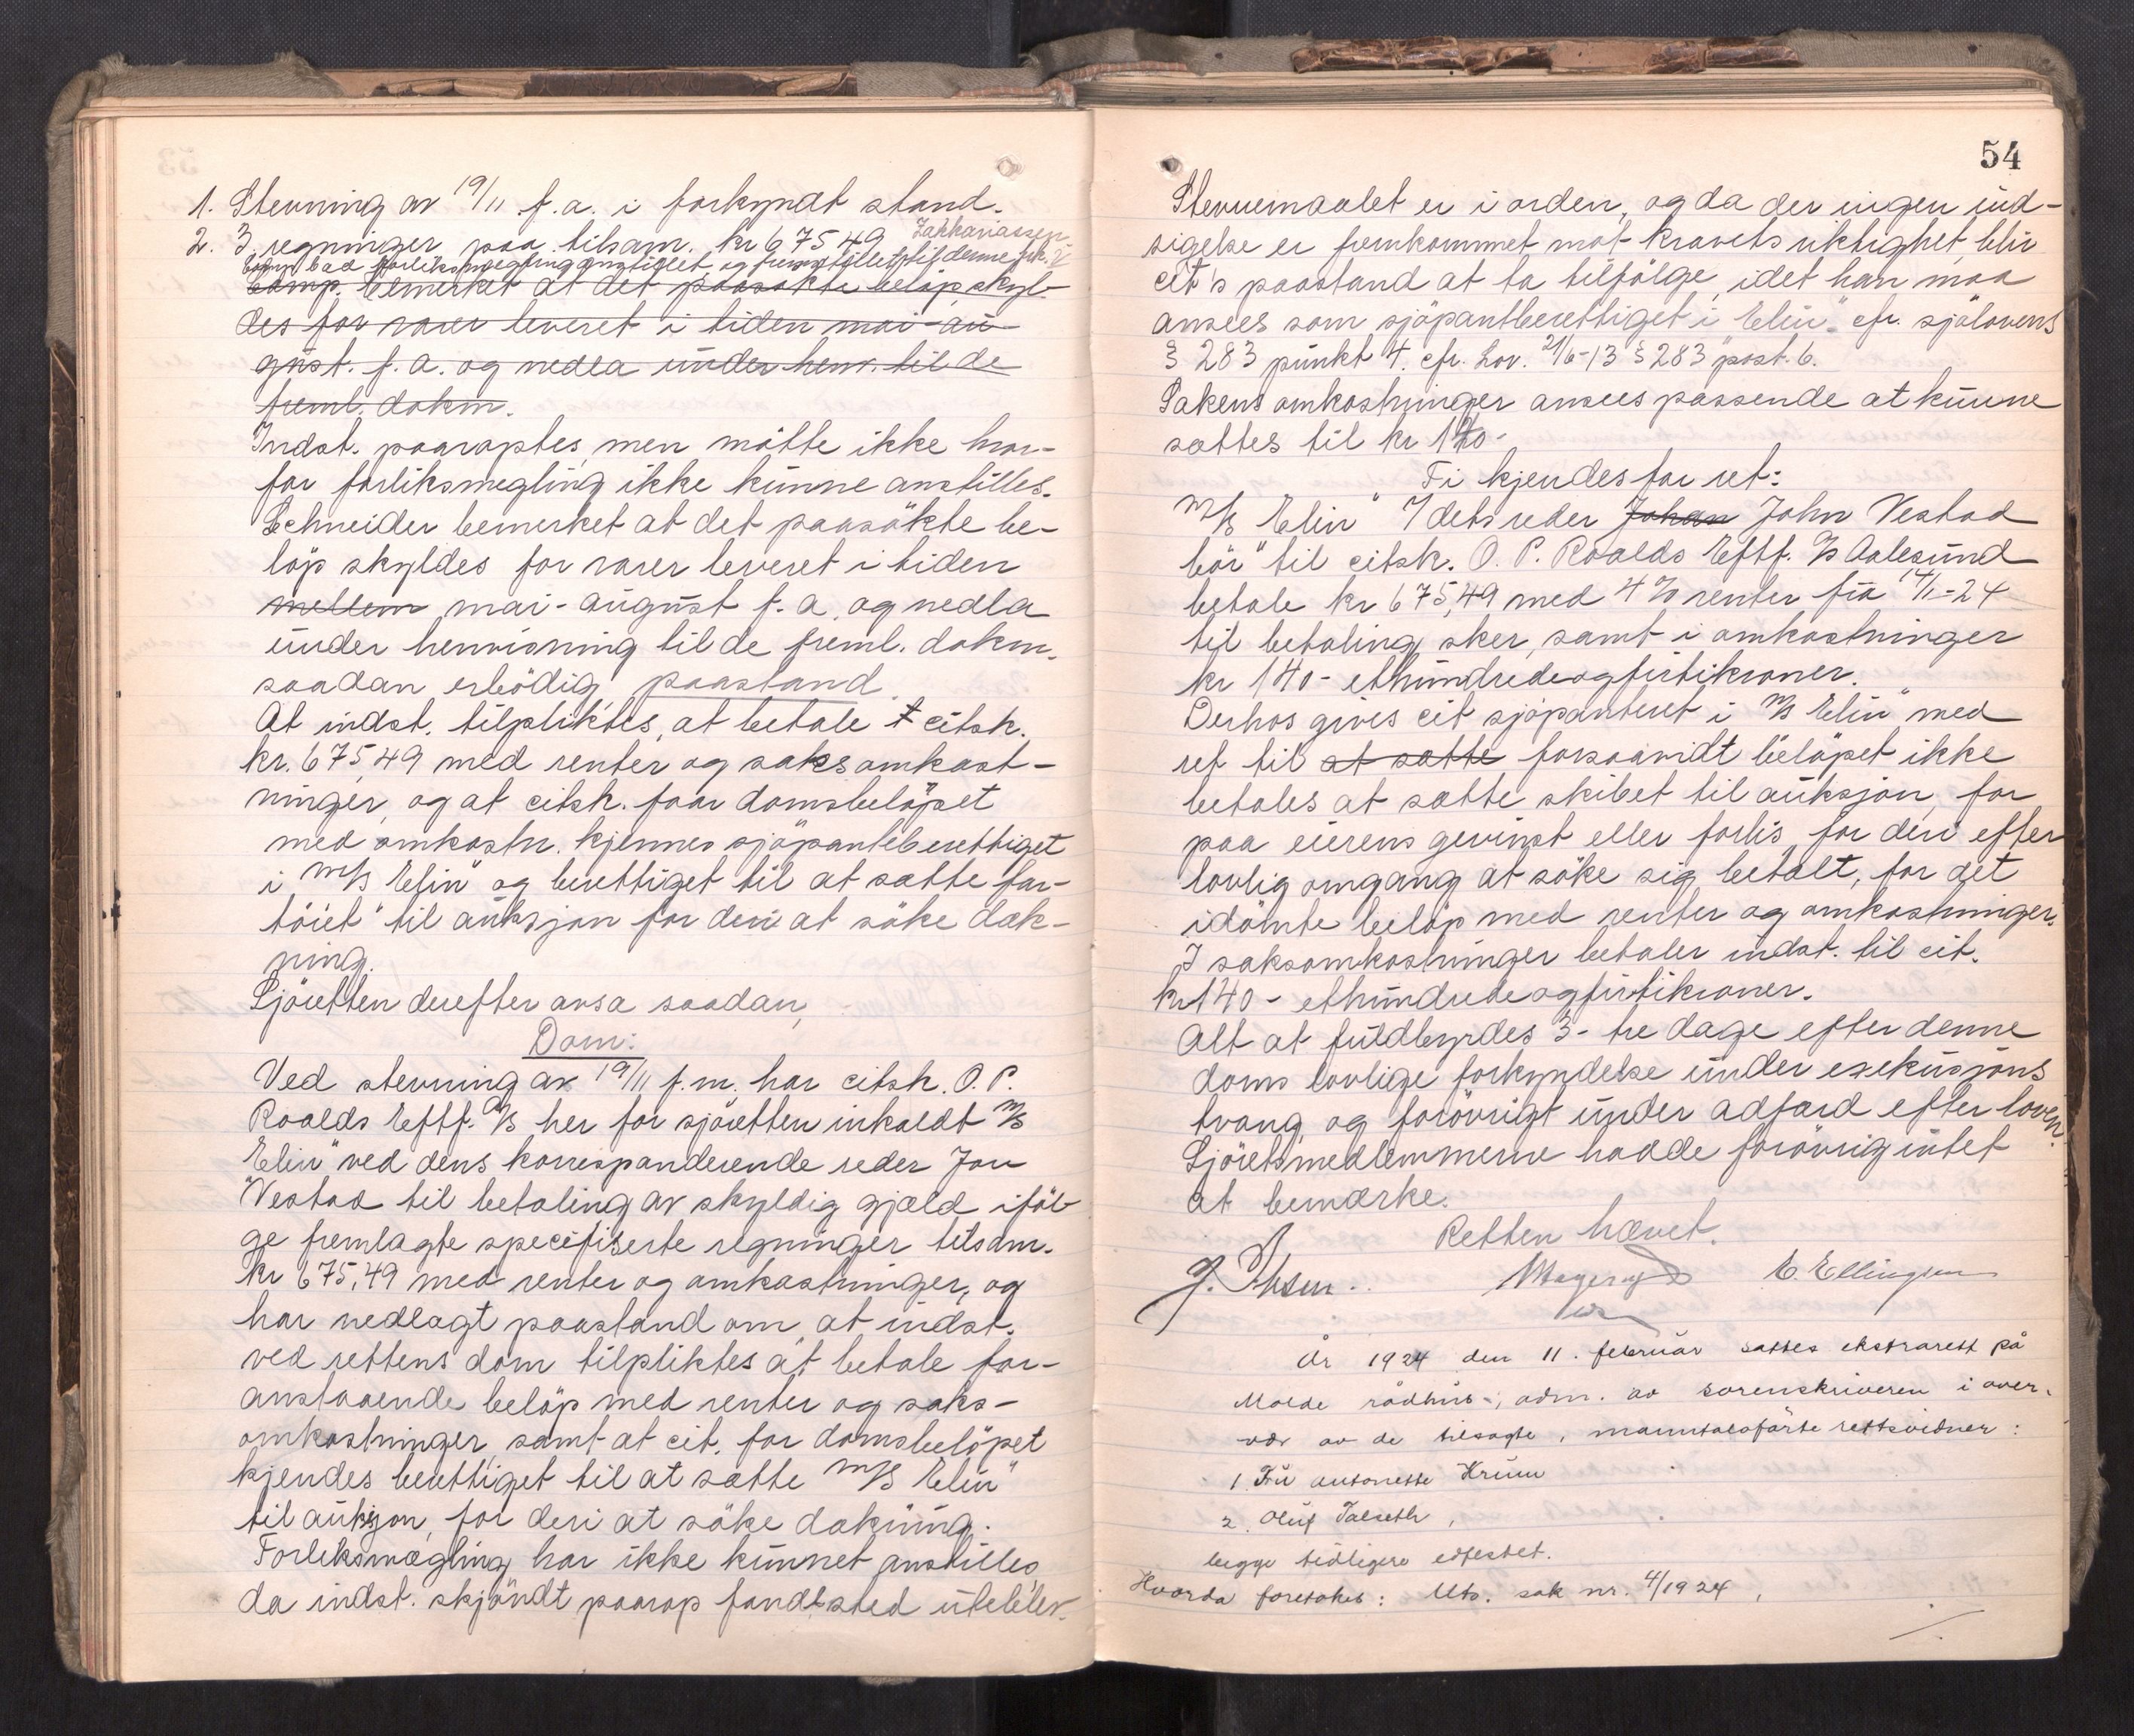 1. Stevning av 19/11 f.a. i forkyndt stand.
2. 3 regninger paa tilsam. kr 675 49 Zakkariassen
Comp. bad forliksmegling anstillet, og
Comp. bemerket at det paasökte belöp skyl-
des for varer leveret i tiden mai-au-
gust. f.a. og nedla under henv. til de
freml. dokm.
Indst. paaroptes, men mötte ikke hvor-
for forliksmegling ikke kunne anstilles.
Schneider bemerket at det paasökte be-
löp skyldes for varer leveret i tiden
mellem mai-august f.a. og nedla
under henvisning til de freml. dokm.
saadan erbödig paastand.
At indst. tilpliktes, at betale t citsk.
kr. 675,49 med renter og saksomkost-
ninger, og at citsk. faar domsbelöpet
med omkostn. kjennes sjöpanteberettiget
i "M/S Elin" og berettiget til at sætte far-
töiet til auksjon for deri at söke dæk-
ning.
Sjöretten derefter avsa saadan,
Dom:
Ved stevning av 19/11 f.m. har citsk. O. P.
Roalds Eftf. A/S her for sjöretten inkaldt M/S
"Elin" ved dens korresponderende reder Jon
Vestad til betaling av skyldig gjæld iföl-
ge fremlagte specifiserte regninger tilsam.
kr 675,49 med renter og omkostninger, og
har nedlagt paastand om at indst.
ved rettens dom tilpliktes at betale for-
anstaaende belöp med renter og saks-
omkostninger samt at cit. for domsbelöpet
kjendes berettiget til at sætte M/S Elin"
til auksjon, for deri at söke dækning.
Forliksmægling har ikke kunnet anstilles
da indst. skjöndt paarop fandt sted uteblev.
54
Stevnemaalet er i orden, og da der ingen ind-
sigelse er fremkommet mot kravets riktighet, blir
cit's paastand at ta tilfölge, idet han maa
ansees som sjöpantberettiget i "Elin" cfr. sjölovens
§ 283 punkt 4. cfr. Lov. 21/6-13 § 283 post. 6.
Sakens omkostninger ansees passende at kunne
sættes til kr 140-
Ti kjendes for ret:
M/S "Elin" v/ dets reder Johan John Vestad
bör til citsk. O. P. Roalds Eftf. A/S Aalesund
betale kr 675,49 med 4 % renter fra 14/1-24
til betaling sker, samt i omkostninger
kr 140- ethundredeogfirtikroner.
Derhos gives cit sjöpanteret i M/S "Elin" med
ret til at sætte forsaavidt belöpet ikke
betales at sætte skibet til auksjon, for
paa eierens gevinst eller forlis, for deri efter
lovlig omgang at söke sig betalt, for det
idömte belöp med renter og omkostninger.
I saksomkostninger betaler indst. til cit.
kr 140- ethundredeogfirtikroner.
Alt at fuldbyrdes 3- tre dage efter denne
doms lovlige forkyndelse under eksekusjons
tvang, og forövrigt under adfærd efter loven.
Sjöretsmedlemmerne hadde forövrig intet
at bemærke.
Retten hævet.
J. Ibsen. E. Ellingsen
År 1924 den 11. februar sattes ekstrarett på
Molde rådhus, adm. av sorenskriveren i over-
vær av de tilsagte, manntalsförte rettsvidner:
1 Fru Antonette Krum
2. Oluf Talseth,
begge tidligere edfestet.
Hvorda foretokes: Uts. sak nr. 4/1924,